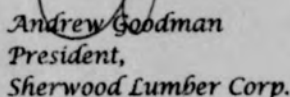 Andrew Goodman
President,
Sherwood Lumber Corp.